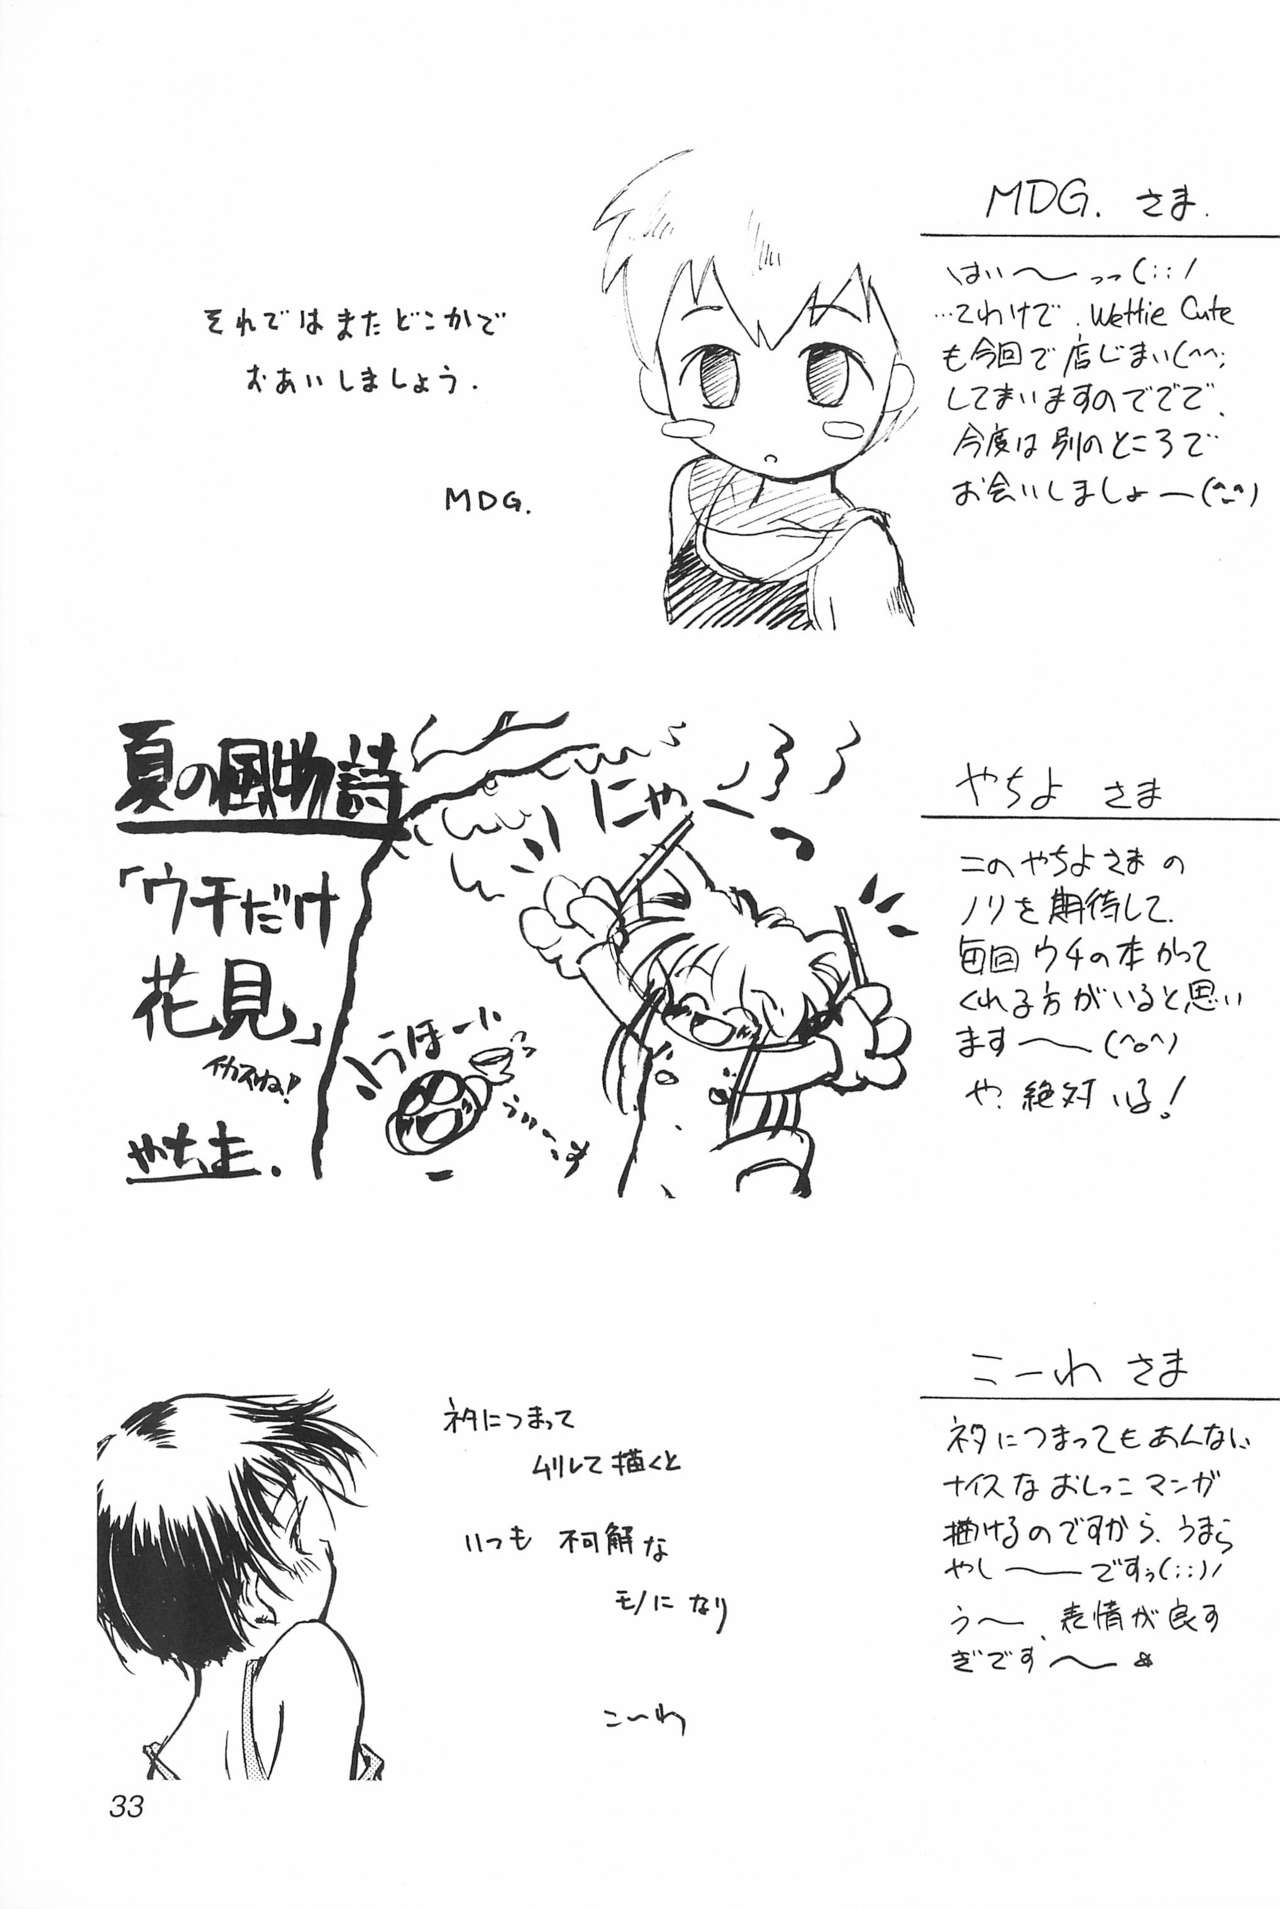 MDG. さま.
はい〜っっ(;;)/
…てわけで、Wettie Cute
も今回で店じまい(^^;
してまいますのでででで、
今度は別のところで
お会いしましょー(^_^)
それではまたどこかで
おあいしましょう.
MDG.
やちよ さま
このやちよさまの
ノリを期待して、
毎回ウチの本かって
くれる方がいると思い
ます〜(^o^)
や、絶対いる!
夏の風物詩
「ウチだけ
花見」
イカスね!
やちよ.
にゃー
うほーい
こーわ さま
ネタにつまってもあんない
ナイスなおしっこマンガ
描けるのですから、うまら
やしーですぅ(;;)/
う〜、表情が良す
ぎです〜
ネタにつまって
ムリして描くと
いつも 不可解な
モノに なり
こーわ
33